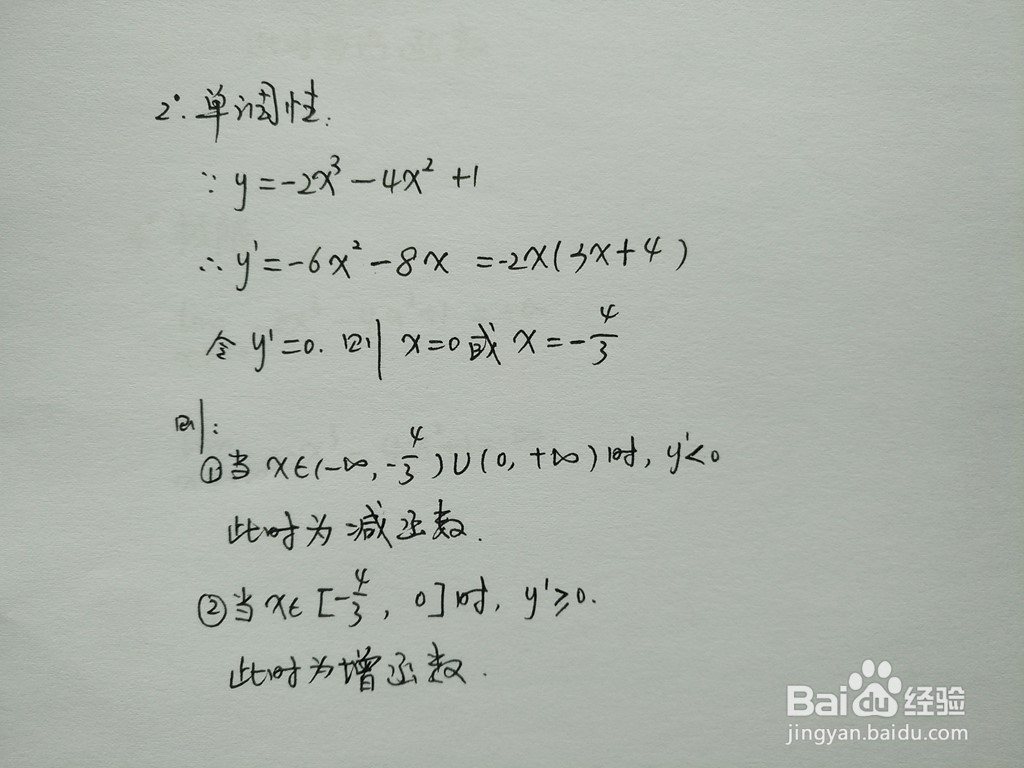 2°. 单调性:
∵ y = -2x³ - 4x² + 1
∴ y' = -6x² - 8x = -2x(3x+4)
令 y'=0. 则 x=0 或 x = -4/3
则:
①当 x∈(-∞, -4/3)∪(0, +∞)时, y'<0
此时为减函数.
②当 x∈[-4/3, 0]时, y'≥0.
此时为增函数.
Baidu经验
jingyan.baidu.com